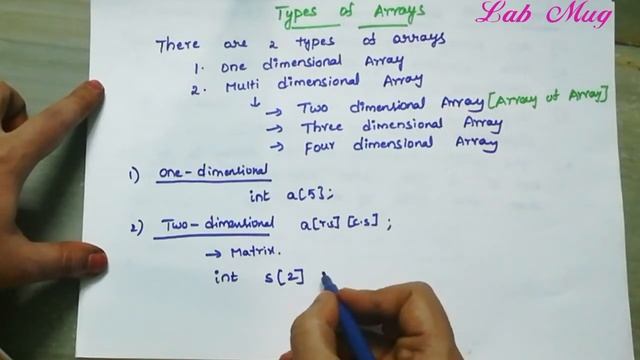 Types of Arrays
Lab Mug
There are 2 types of arrays
1. One dimensional Array
2. Multi dimensional Array
↓
→ Two dimensional Array [Array of Array]
→ Three dimensional Array
→ Four dimensional Array
1) One-dimensional
int a[5];
2) Two-dimensional a[r.s] [c.s] ;
→ Matrix.
int s[2]